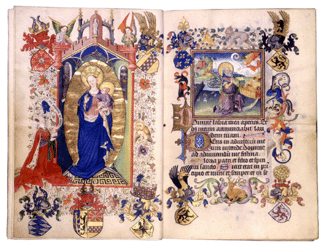 Domine labia mea aperies. Et
os meum annunciabit lau
dem tuam.
Deus in adiutorium me
um intende domine
ad adiuvandum me festina
Gloria patri et filio et spiri
tui sancto. Sicut erat in
principio et nunc et semper et in se